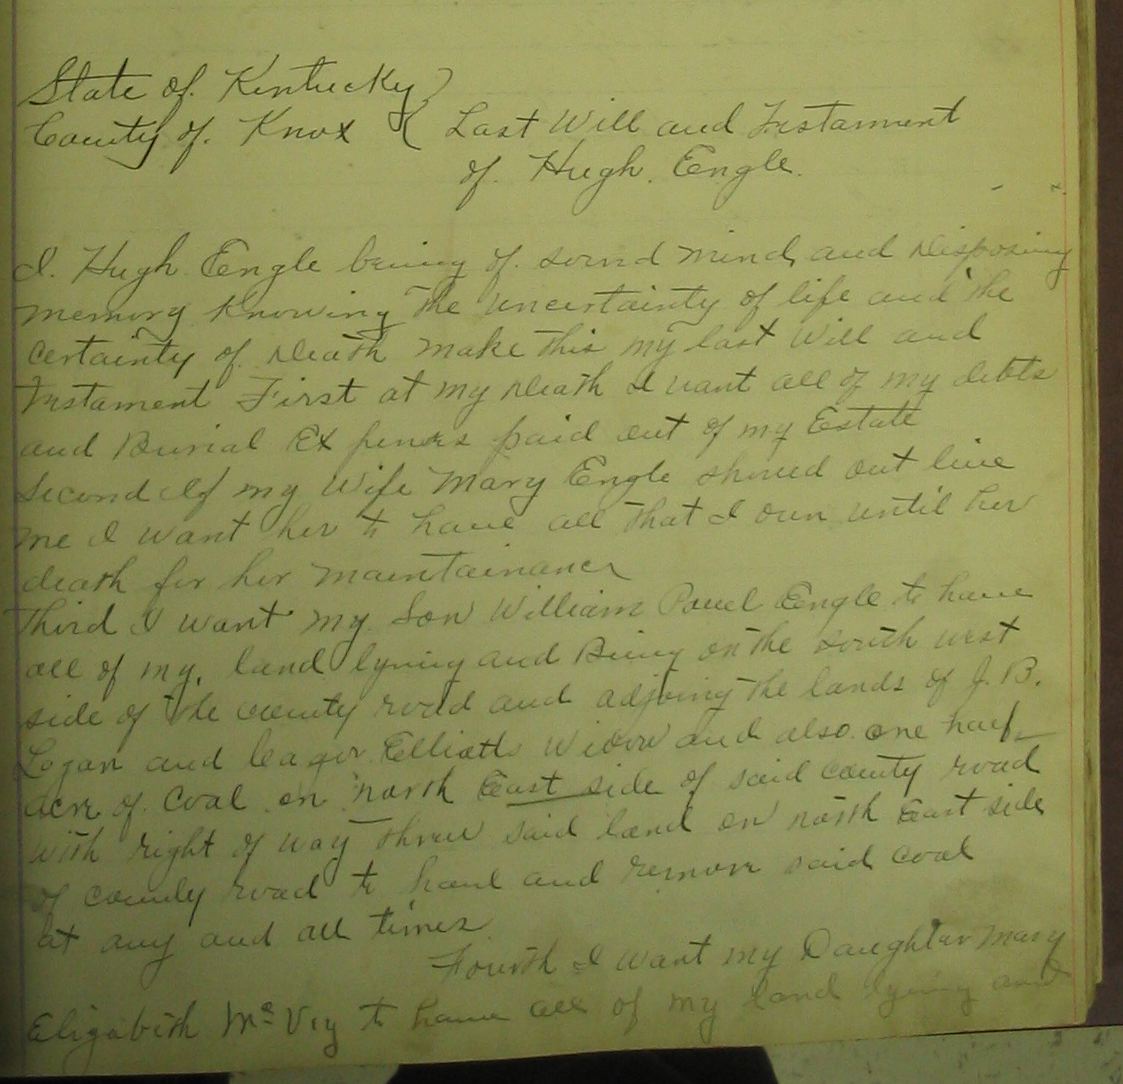 State of. Kentucky
County of. Knox Last Will and Testament
of. Hugh. Engle.
I. Hugh Engle being of. sound mind, and disposing
memory Knowing the uncertainty of life and the
certainty of. death make this my last Will and
Testament First at my death I want all of my debts
and Burial Expences paid out of my Estate
Second If my Wife Mary Engle should out live
me I want her to have all that I own until her
death for her maintainance
Third I want my Son William Paul Engle to have
all of my, land lyning and Being on the south west
side of the county road and adjoing the lands of J. B.
Logan and Elliotts Widow and also one half
acre of. Coal on north East side of said county road
with right of way threw said land on north East side
of county road to haul and remove said coal
at any and all times
Fourth I want my Daughter Mary
Elizabeth McVey to have all of my land lyning and